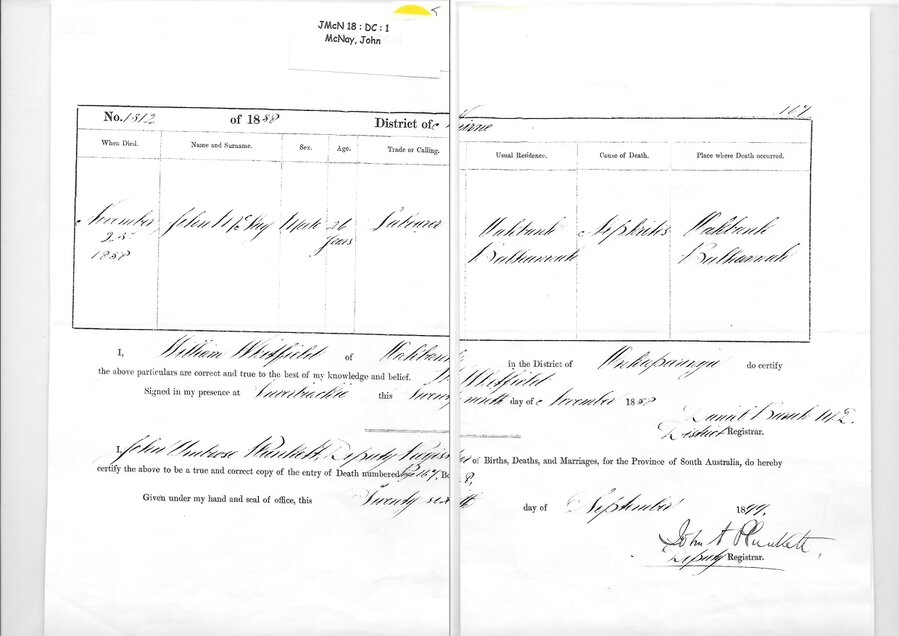 JMcN 18 : DC : 1
McNay, John
167
No. 1312 of 1858 District of Nairne
When Died. Name and Surname. Sex. Age. Trade or Calling. Usual Residence. Cause of Death. Place where Death occurred.
November John McNay Male 26 Labourer Oakbank Oakbank
25th Years Balhannah Balhannah
1858
I, William Whitfield of Oakbank in the District of Onkaparinga do certify
the above particulars are correct and true to the best of my knowledge and belief. Whitfield
Signed in my presence at this Twenty ninth day of November 1858
M.D.
District Registrar.
I, John Ambrose Plunkett, Deputy Regis of Births, Deaths, and Marriages, for the Province of South Australia, do hereby
certify the above to be a true and correct copy of the entry of Death numbered 167,
Given under my hand and seal of office, this Twenty sixth day of September 1899.
John A Plunkett,
Deputy Registrar.